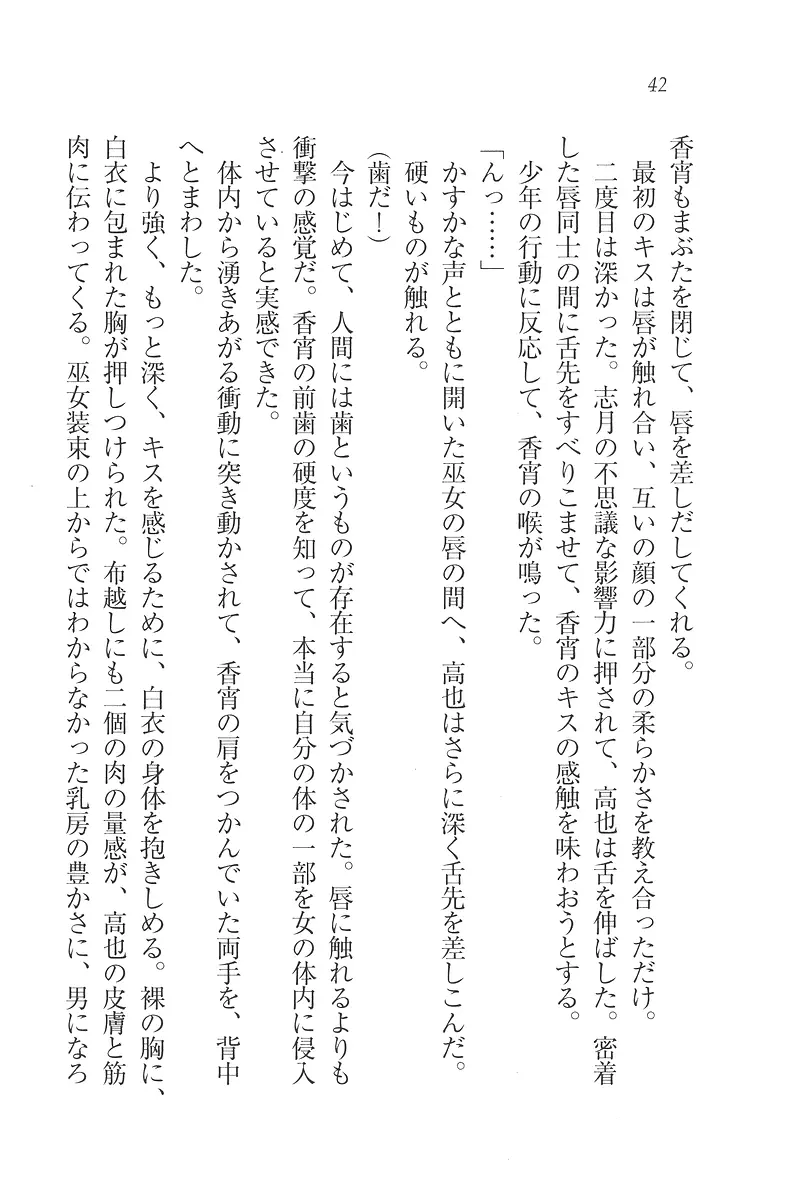 42
香宵もまぶたを閉じて、唇を差しだしてくれる。
最初のキスは唇が触れ合い、互いの顔の一部分の柔らかさを教え合っただけ。
二度目は深かった。志月の不思議な影響力に押されて、高也は舌を伸ばした。密着
した唇同士の間に舌先をすべりこませて、香宵のキスの感触を味わおうとする。
少年の行動に反応して、香宵の喉が鳴った。
「んっ……」
かすかな声とともに開いた巫女の唇の間へ、高也はさらに深く舌先を差しこんだ。
硬いものが触れる。
(歯だ！)
今はじめて、人間には歯というものが存在すると気づかされた。唇に触れるよりも
衝撃の感覚だ。香宵の前歯の硬度を知って、本当に自分の体の一部を女の体内に侵入
させていると実感できた。
体内から湧きあがる衝動に突き動かされて、香宵の肩をつかんでいた両手を、背中
へとまわした。
より強く、もっと深く、キスを感じるために、白衣の身体を抱きしめる。裸の胸に、
白衣に包まれた胸が押しつけられた。布越しにも二個の肉の量感が、高也の皮膚と筋
肉に伝わってくる。巫女装束の上からではわからなかった乳房の豊かさに、男になろ